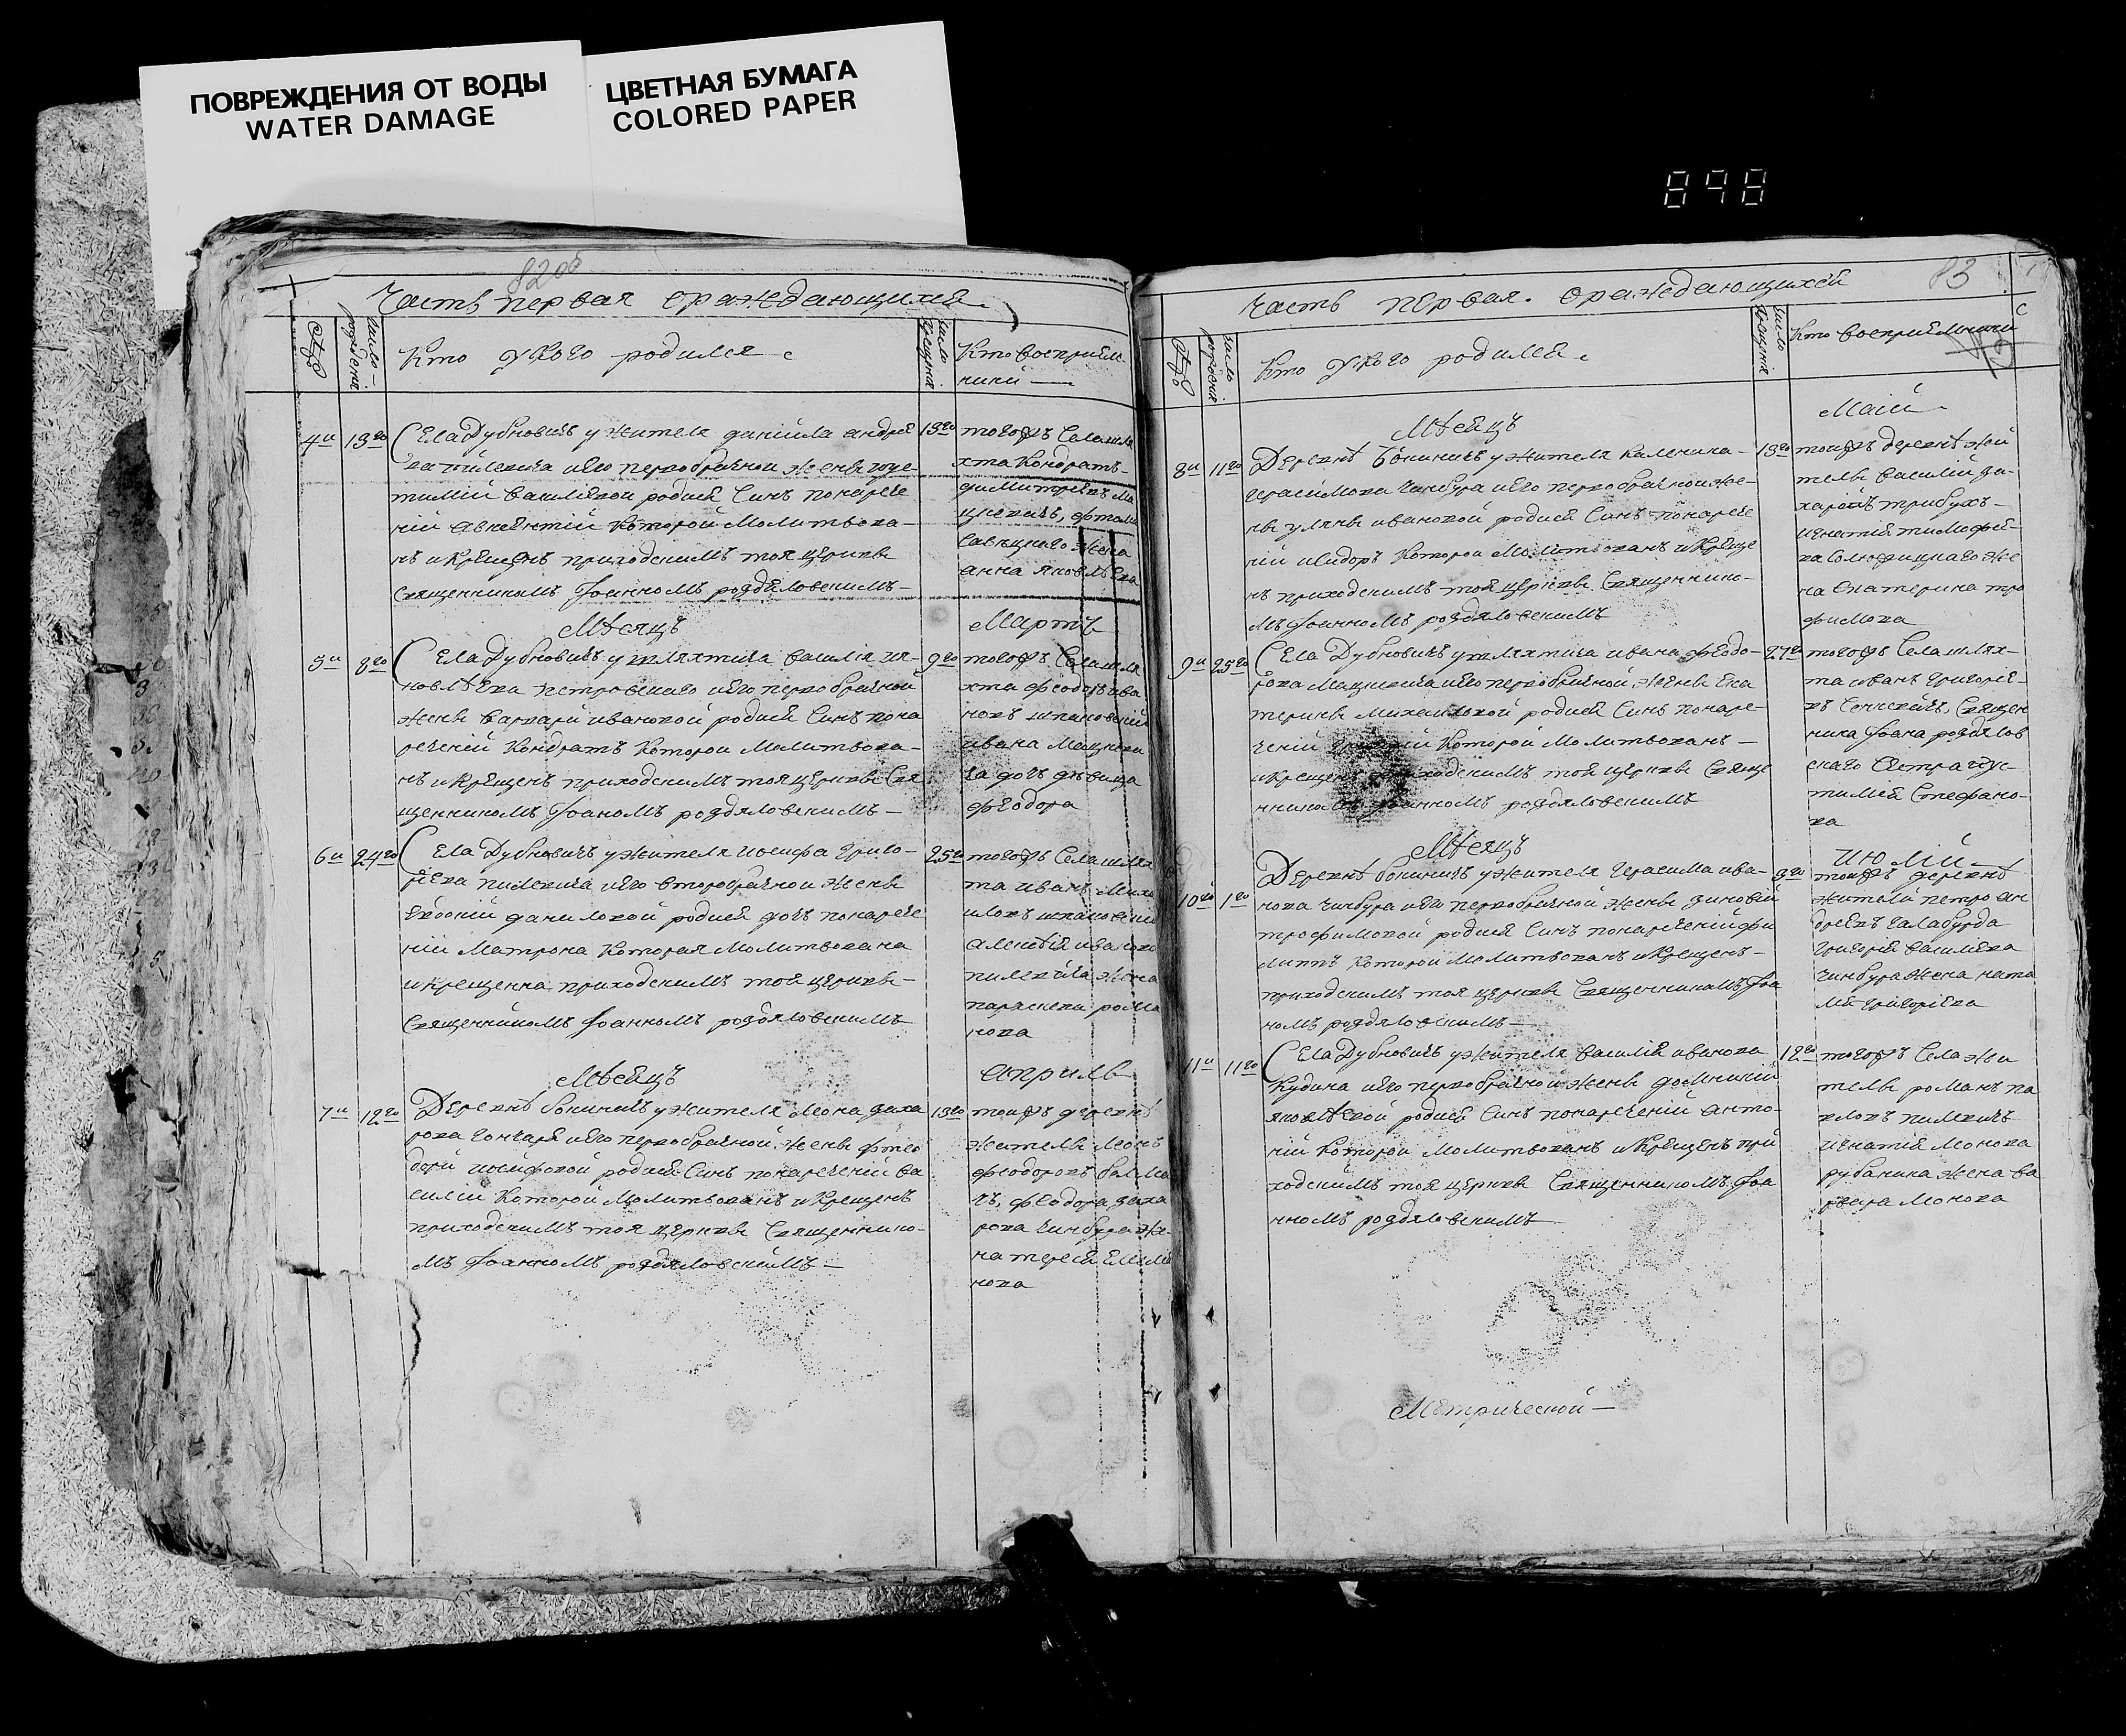 ПОВРЕЖДЕНИЯ ОТ ВОДЫ
WATER DAMAGE
ЦВЕТНАЯ БУМАГА
COLORED PAPER
898
Часть первая ораждающихся
Число рождения
Кто укого родился
Число крещения
Кто восприем
ники
4и 13го
Села Дубновичъ ужителя даніила андрее
ва пилевича иего первобрачной жены
тиміи василевой родися Синъ понарече
ній которой Молитвова
нъ и крещенъ приходскимъ тоя церкви
священникомъ Іоанномъ роздяловскимъ
13го
тогожъ Села шля
хта кондратъ
димитревъ ма
цкевичъ,
жена
анна яковлева
Мѣсяцъ
Мартъ
5и 8го
Села Дубновичъ ушляхтича василія
новлѣва петровскаго иего первобрачной
жены варвари ивановой родися Синъ пона
реченій кондратъ которой Молитвова
нъ и крещенъ приходскимъ тоя церкви Свя
щенникомъ Іоаномъ роздяловскимъ
9го
тогожъ Села шля
хта феодоръ ива
новъ шпаковскій
ивана мацкеви
ча дочъ дѣвица
феодора
6и 24го
Села Дубновичъ ужителя иосифа григо
рѣва пилевича иего второбрачной жены
данилохой родися дочъ понарече
ній матрона которая молитвована
и крещенна приходскимъ тоя церкви
Священникомъ Іоанномъ роздяловскимъ
25го
тогожъ Села шлях
та иванъ миха
иловъ шпаковскій
алексѣя ивановa
пилевича жена
параскева рома
нова
Мѣсяцъ
априль
7и 12го
Деревнѣ бокиничъ ужителя мона заха
рова гончаря иего первобрачной жены
иосифовой родися Синъ понаречений ва
силій которой Молитвованъ и крещенъ
приходскимъ тоя церкви Священнико
мъ Іоанномъ роздяловскимъ
13го
тоижъ деревнѣ
житель
феодоровъ
феодора заха
рова чинбура же
на
нова
83
Часть первая. ораждающихся
Число рождения
Кто укого родися
Число крещения
Кто восприемники
Мѣсяцъ
Маій
8и 11го
Деревнѣ Бокиничъ ужителя каленика
герасимова чинбура иего первобрачной же
ны уляны ивановой родися Синъ понарече
ній исидоръ которой молитвованъ и креще
нъ приходскимъ тоя церкви Священнико
мъ Іоанномъ роздяловскимъ
13го
тоижъ деревнѣ жи
тель василій за
харовъ трибухъ
игнатія тимофѣе
ва же
на Екатерина тро
фимова
9и 25го
Села Дубновичъ ушляхтича ивана феодо
рова мацкевича иего первобрачной жены ека
терины михаиловой родися Синъ понаре
ченій которой молитвованъ
и крещенъ приходскимъ тоя церкви Свяще
нникомъ Іоанномъ роздяловскимъ
27го
тогожъ Села шлях
та иванъ григорѣе
въ Священ
ника Іоана роздялов
скаго сестра иус
тимія стефано
ва
Мѣсяцъ
июлій
10го 1го
Деревнѣ бокиничъ ужителя герасима ива
нова чинбура иего первобрачной жены зиновіи
трофимовой родися Синъ понареченій фи
липъ которой молитвованъ и крещенъ
приходскимъ тоя церкви Священникомъ Іоа
номъ роздяловскимъ
тоижъ деревнѣ
житель петро ан
дреевъ галабурда
григорія василева
чинбура жена ната
лія григорѣва
11и 11го
Села Дубновичъ ужителя василія иванова
кудина иего первобрачной жены домникіи
яковлѣвой родися Синъ понареченій анто
ній которой молитвованъ и крещенъ при
ходскимъ тоя церкви Священникомъ Іоа
нномъ роздяловскимъ
12го
тогожъ Села жи
тель романъ па
вловъ пилевичъ
игнатія монова
рубаника жена ва
рвара монова
Метрической